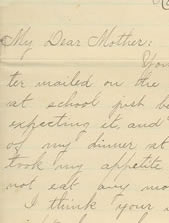 My Dear Mother:
You
ter mailed on the
at school just be
expecting it, and
of my dinner at
took my appetite
not eat any mo
I think your